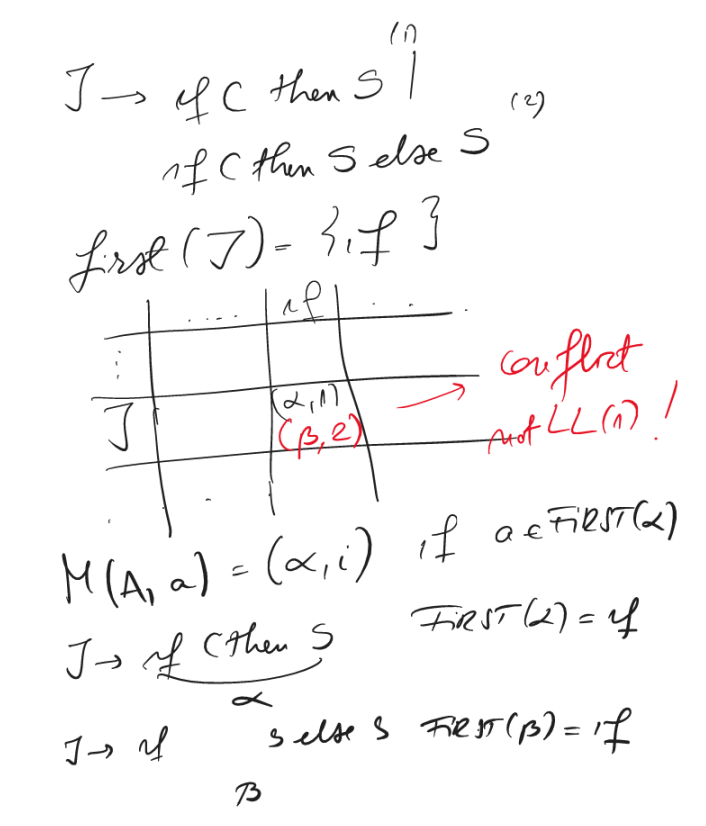 (1)
J → if C then S |
if C then S else S (2)
first(J) = {if}
.... if . . .
⋮
J (α,1) → conflict
(β,2) not LL(1)!
. .
M(A, a) = (α, i) if a ∈ FIRST(α)
J → if C then S FIRST(α) = if
α
J → if S else S FIRST(β) = if
β